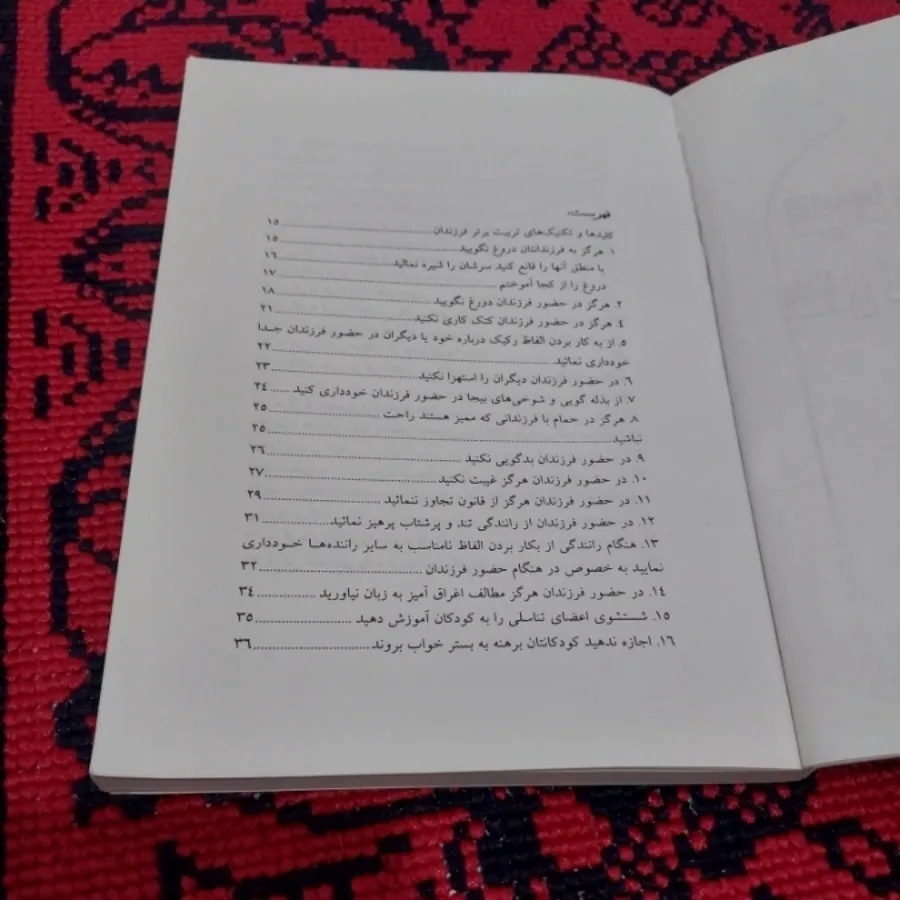 فهرست:
کلیدها و تکنیک‌های تربیت برتر فرزندان ........ ۱۵
۱. هرگز به فرزندانتان دروغ نگویید ........ ۱۵
با منطق آنها را قانع کنید سرشان را شیره نمالید ........ ۱۶
دروغ را از کجا آموختم ........ ۱۷
۲. هرگز در حضور فرزندان دورغ نگویید ........ ۱۸
۴. هرگز در حضور فرزندان کتک کاری نکنید ........ ۲۱
۵. از به کار بردن الفاظ رکیک درباره خود یا دیگران در حضور فرزندان جداً
خودداری نمائید ........ ۲۲
۶. در حضور فرزندان دیگران را استهزا نکنید ........ ۲۳
۷. از بذله گویی و شوخی‌های بیجا در حضور فرزندان خودداری کنید ...... ۲۴
۸. هرگز در حمام با فرزندانی که ممیز هستند راحت ........ ۲۵
نباشید ........ ۲۵
۹. در حضور فرزندان بدگویی نکنید ........ ۲۶
۱۰. در حضور فرزندان هرگز غیبت نکنید ........ ۲۷
۱۱. در حضور فرزندان هرگز از قانون تجاوز ننمائید ........ ۲۹
۱۲. در حضور فرزندان از رانندگی تند و پرشتاب پرهیز نمائید ........ ۳۱
۱۳. هنگام رانندگی از بکار بردن الفاظ نامناسب به سایر راننده‌ها خودداری
نمایید به خصوص در هنگام حضور فرزندان ........ ۳۲
۱۴. در حضور فرزندان هرگز مطالف اغراق آمیز به زبان نیاورید ........ ۳۴
۱۵. شستشوی اعضای تناسلی را به کودکان آموزش دهید ........ ۳۵
۱۶. اجازه ندهید کودکانتان برهنه به بستر خواب بروند ........ ۳۶